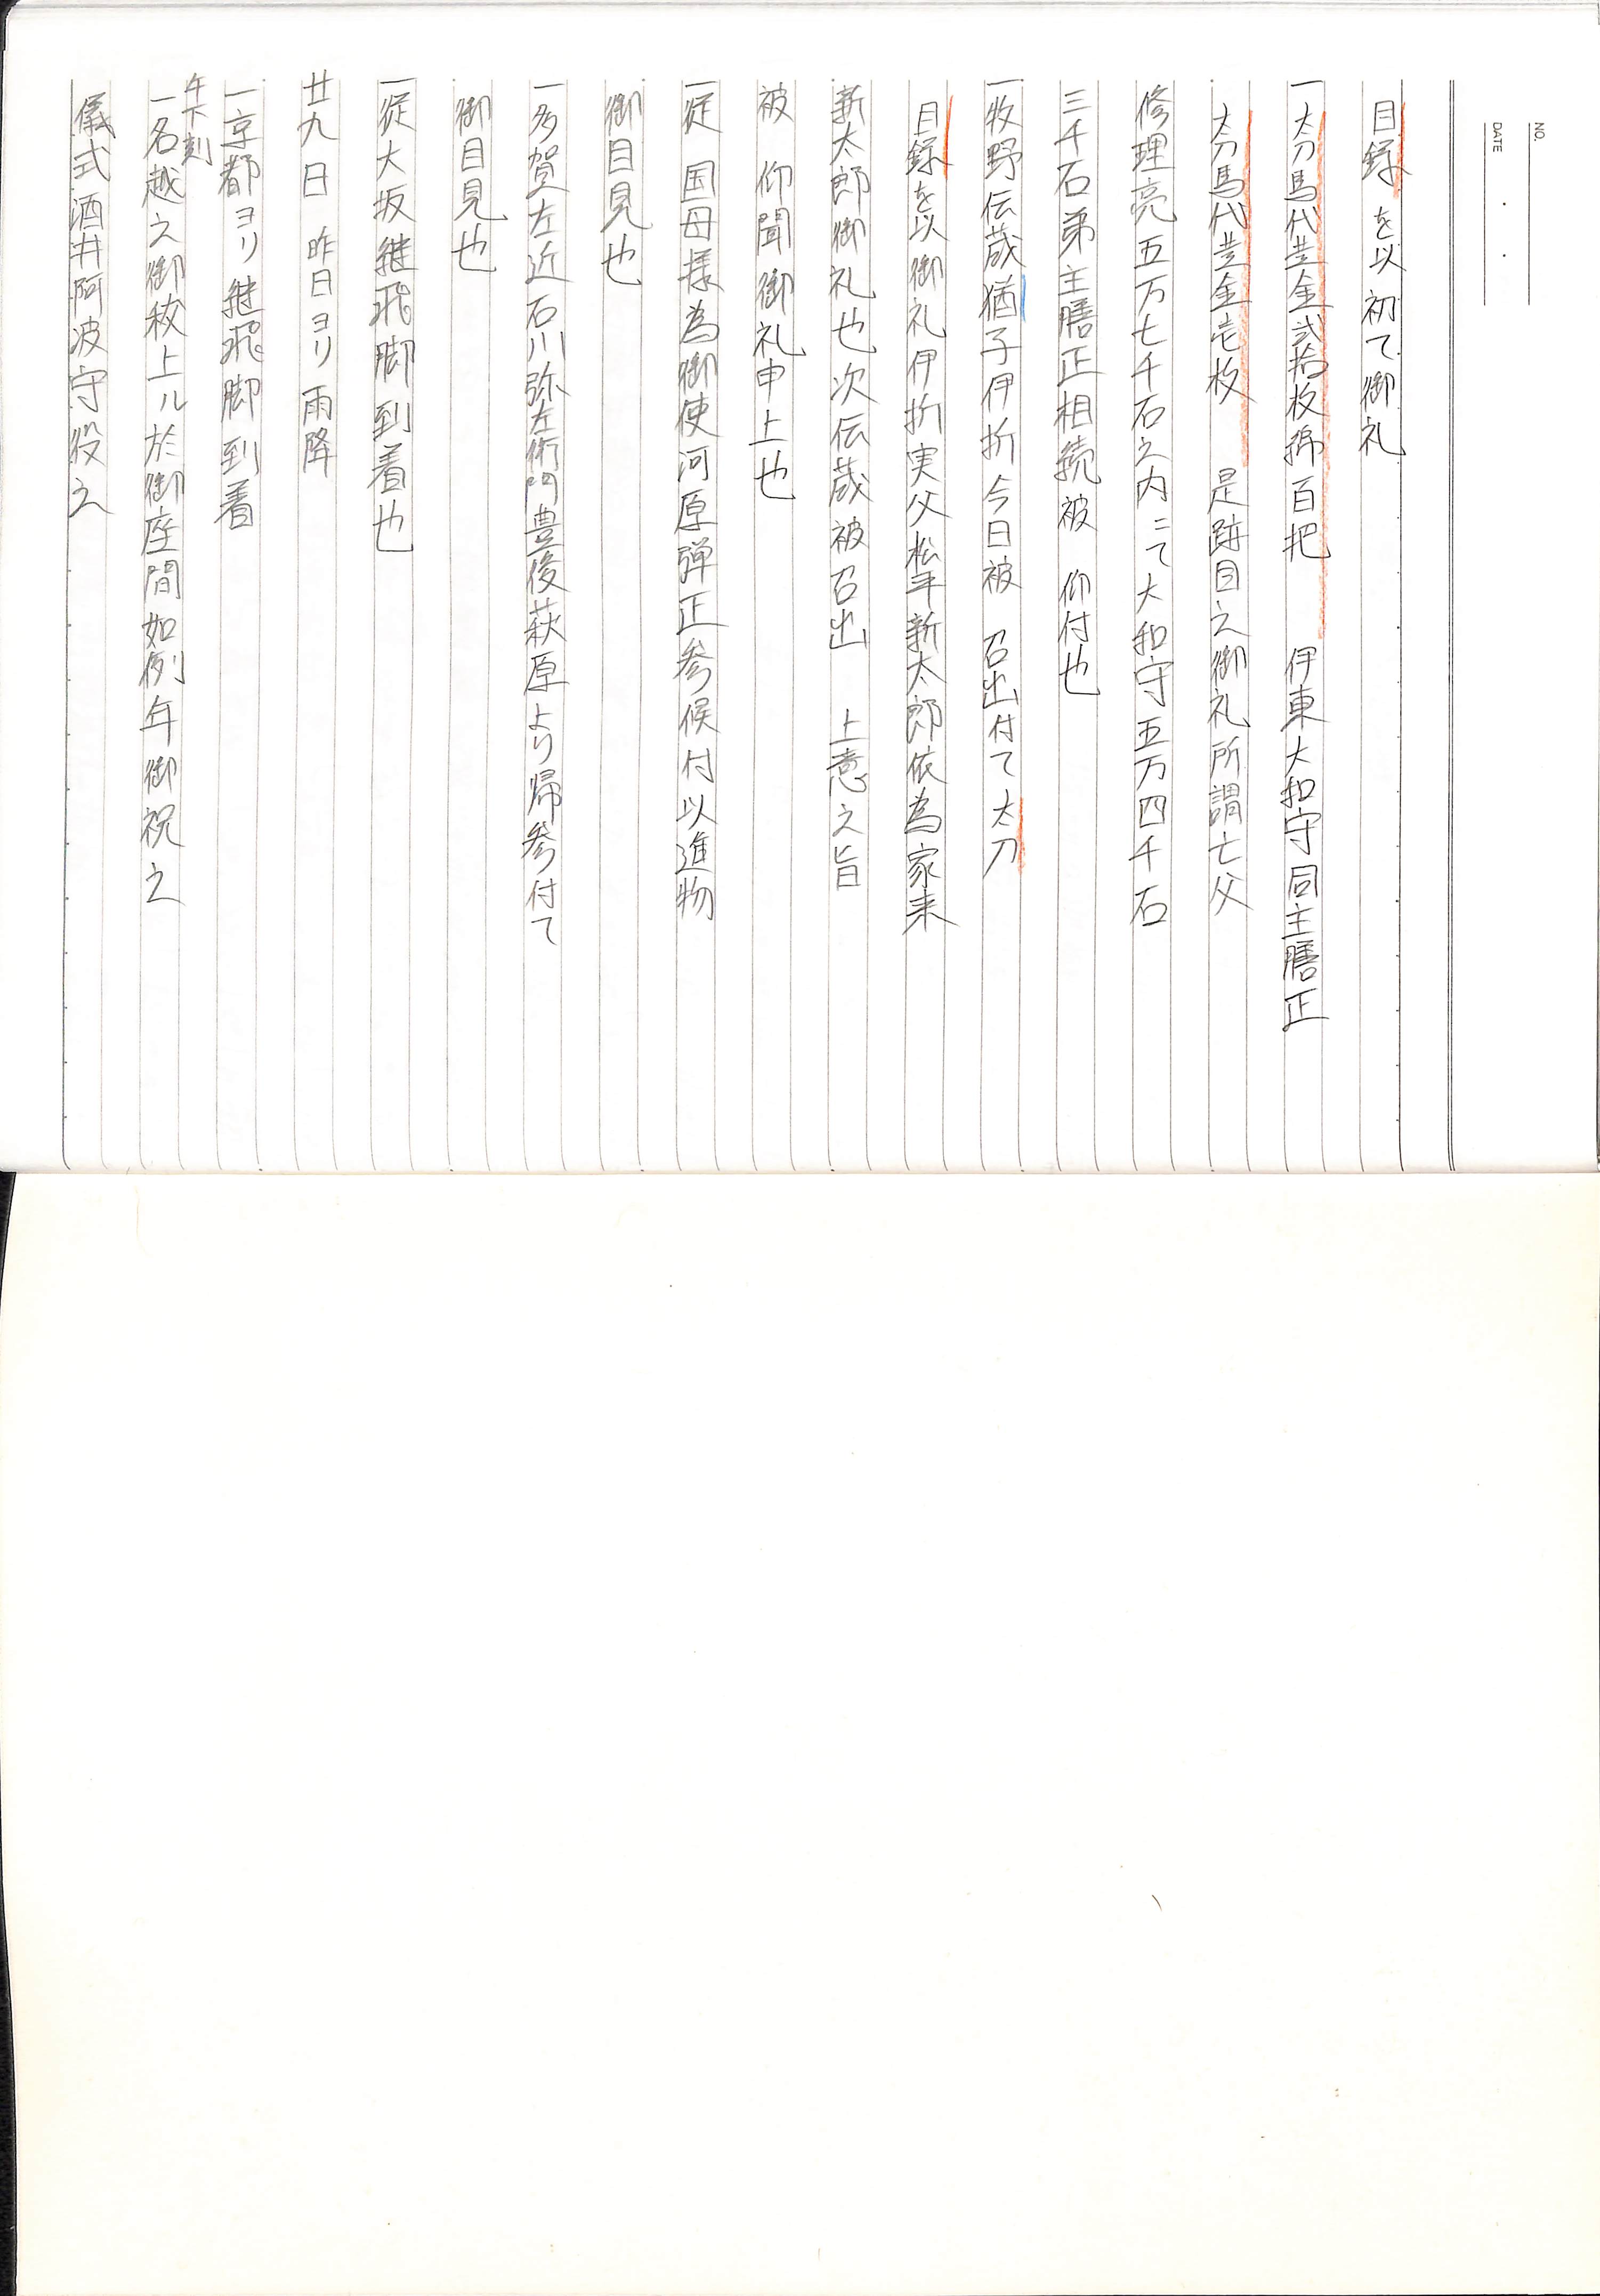 NO.
DATE
目録を以初て御礼
一太刀馬代黄金弐拾枚綿百把　伊東大和守同主膳正
太刀馬代黄金壱枚　是跡目之御礼所謂亡父
修理亮五万七千石之内ニて大和守五万四千石
三千石弟主膳正相続被　仰付也
一牧野伝蔵猶子伊折今日被　召出付て太刀
目録を以御礼伊折実父松平新太郎依為家来
新太郎御礼也次伝蔵被召出　上意之旨
被　仰聞御礼申上也
一従　国母様為御使河原弾正参候付以進物
御目見也
一多賀左近石川弥左衛門豊後萩原より帰参付て
御目見也
一従大坂継飛脚到着也
廿九日　昨日ヨリ雨降
一京都ヨリ継飛脚到着
午下刻
一名越之御祓上ル於御座間如例年御祝之
儀式酒井阿波守役之